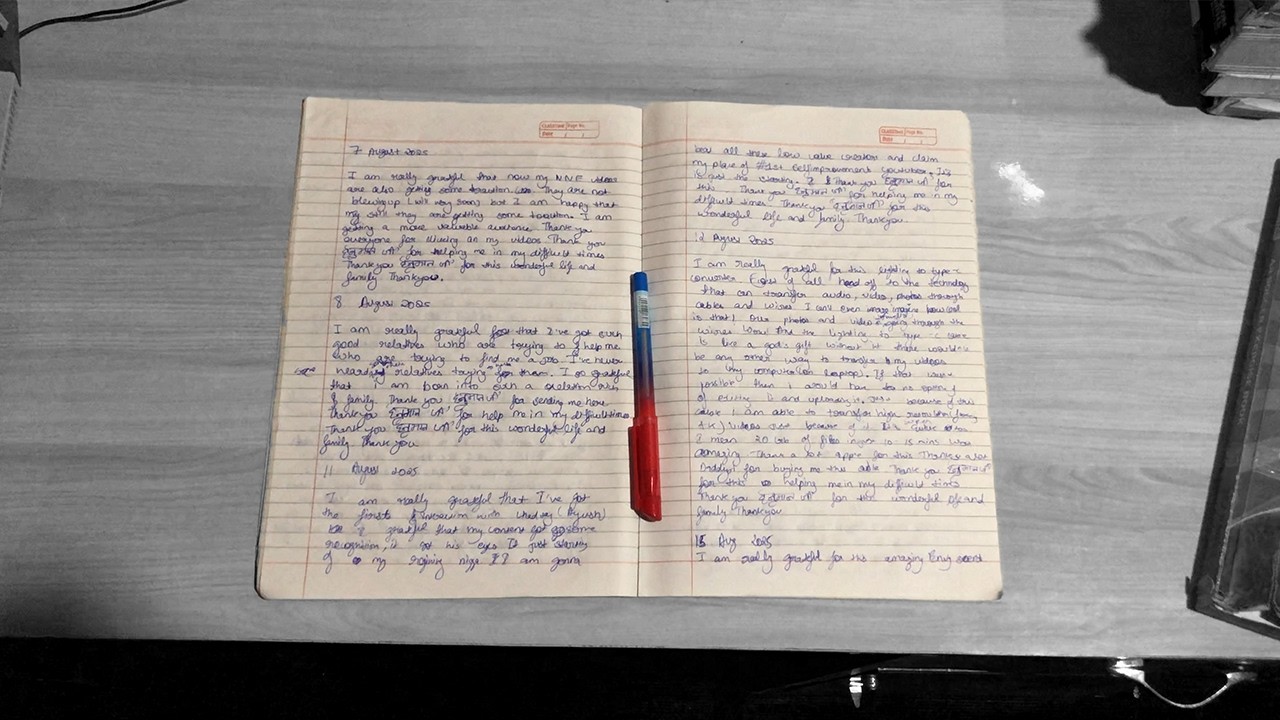 CLASSTIME Page No.
DATE / /
7 August 2025
I am really grateful that now my NNF videos
are also getting some traction. They are not
blowing up (will very soon) but I am happy that
my still they are getting some traction. I am
getting a more valuable audience. Thank you
everyone for on my videos Thank you
हनुमान जी for helping me in my difficult times
Thank you हनुमान जी for this wonderful life and
family. Thank you.
8 August 2025
I am really grateful for that I've got such
good relatives who are trying to help me
who are trying to find me a job. I've never
heard relatives trying for them. I so grateful
that I am born into such a relation
& family. Thank you हनुमान जी for sending me here
Thank you हनुमान जी for help me in my difficult times
Thank you हनुमान जी for this wonderful life and
family. Thank you
11 August 2025
I am really grateful that I've got
the first interview with (Ayush)
I grateful that my content got some
recognition, it got his eyes It just starting
of my I am gonna
CLASSTIME Page No.
DATE / /
beat all these low value creator and claim
my place of #1st Selfimprovement youtuber. It's
is just the starting. I thank you हनुमान जी for
this. Thank you हनुमान जी for helping me in my
difficult times. Thank you हनुमान जी for this
wonderful life and family. Thank you
12 August 2025
I am really grateful for this lighting to type-c
converter First of all off to the technology
that can transfer audio, video, photos through
cables and wires. I can't even imagine how cool
is that! Our photos and video going through the
wires wow. And the lighting to type-c
is like a god's gift without it there wouldn't
be any other way to transfer my videos
to my computer (on laptop). If that wasn't
possible then I would have to no option
of editing it and uploading it. because of this
cable I am able to transfer high resolution
4K) videos because of it
I mean 20 Gb of files in 10-15 mins wow
amazing. Thanks a lot apple for this Thanks a lot
Daddy for buying me this cable Thank you हनुमान जी
for this helping me in my difficult times
Thank you हनुमान जी for the wonderful life and
family Thank you
15 Aug 2025
I am really grateful for this amazing event